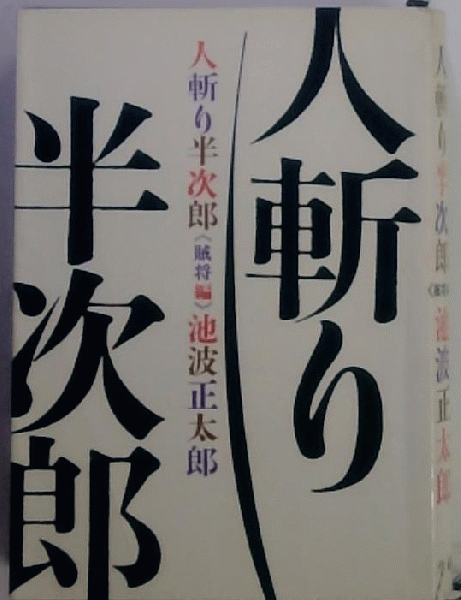 人斬り
半次郎
人斬り半次郎〈賊将編〉池波正太郎
人斬り半次郎〈賊将編〉池波正太郎